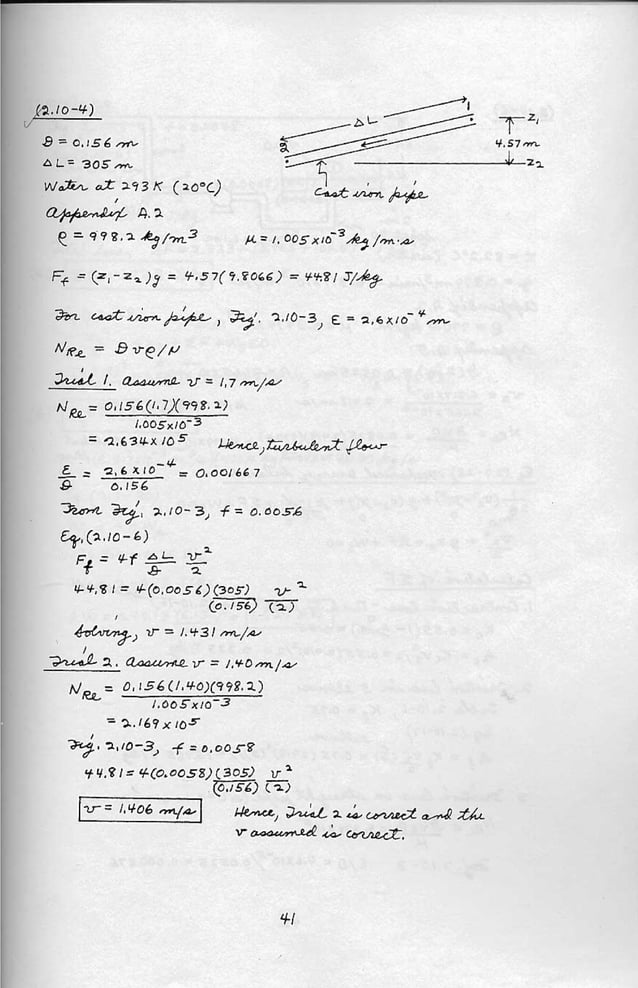 (2.10-4)
ΔL
1
2
Z₁
4.57 m
Z₂
cast iron pipe
D = 0.156 m
ΔL = 305 m
Water at 293 K (20°C)
Appendix A.2
ρ = 998.2 kg/m³   μ = 1.005x10⁻³ kg/m·s
F_f = (z₁-z₂)g = 4.57(9.8066) = 44.81 J/kg
For cast iron pipe, Fig. 2.10-3, ε = 2.6x10⁻⁴ m
N_Re = Dvρ/μ
Trial 1. Assume v = 1.7 m/s
N_Re = 0.156(1.7)(998.2) / 1.005x10⁻³
= 2.634x10⁵   Hence, turbulent flow
ε/D = 2.6x10⁻⁴ / 0.156 = 0.001667
From Fig. 2.10-3, f = 0.0056
Eq. (2.10-6)
F_f = 4f ΔL/D v²/2
44.81 = 4(0.0056) (305)/(0.156) v²/(2)
Solving, v = 1.431 m/s
Trial 2. Assume v = 1.40 m/s
N_Re = 0.156(1.40)(998.2) / 1.005x10⁻³
= 2.169x10⁵
Fig. 2.10-3, f = 0.0058
44.81 = 4(0.0058) (305)/(0.156) v²/(2)
v = 1.406 m/s   Hence, Trial 2 is correct and the
v assumed is correct.
41